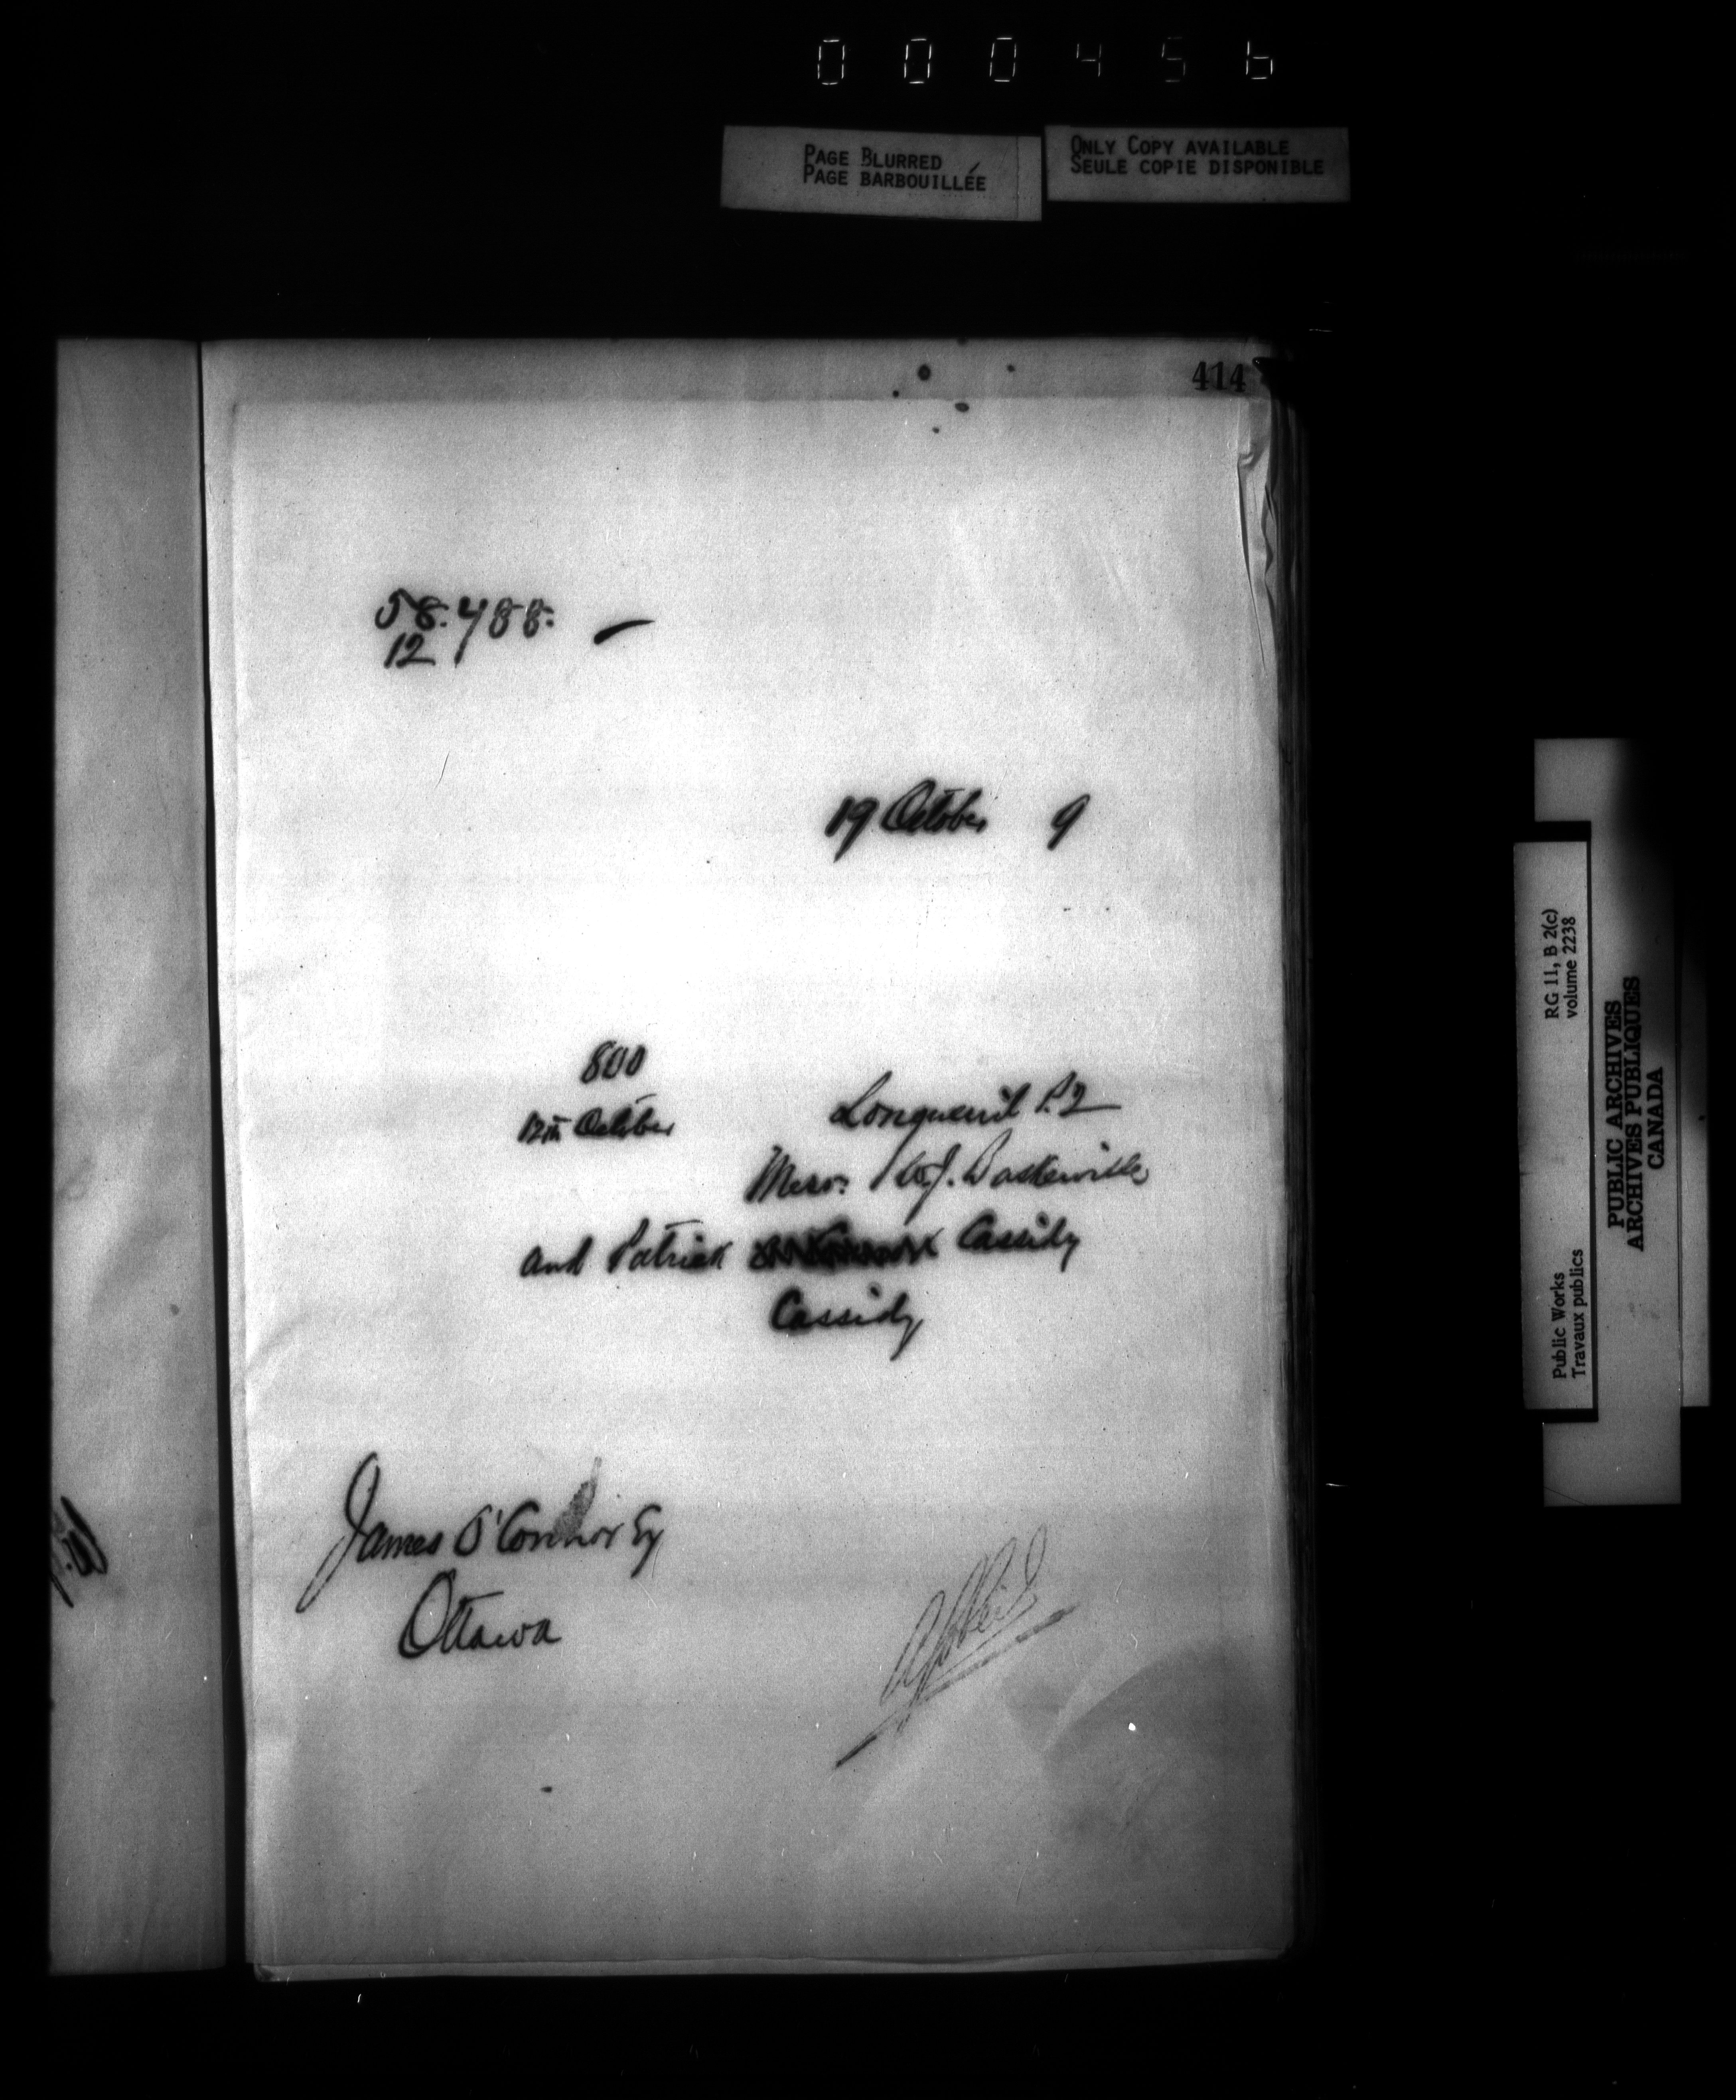 000456
PAGE BLURRED
PAGE BARBOUILLÉE
ONLY COPY AVAILABLE
SEULE COPIE DISPONIBLE
414
58.488.
12
19 October 9
800
12th October
Longueuil P.Q
Messrs. W.J. Baskerville
and Patrick Cassidy
Cassidy
James O'Connor Esq
Ottawa
Public Works
Travaux publics
RG 11, B 2(c)
volume 2238
PUBLIC ARCHIVES
ARCHIVES PUBLIQUES
CANADA